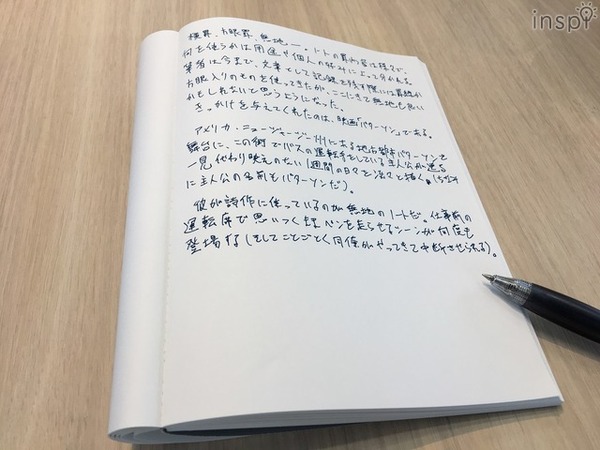 inspi
横罫、方眼罫、無地―。ノートの罫内容は様々で、
何を使うかは用途や個人の好みによって分かれる。
筆者は今まで、文章として記録を残す際には罫線か
方眼入りのものを使ってきたが、ここにきて無地も良い
かもしれないと思うようになった。
きっかけを与えてくれたのは、映画「パターソン」である。
アメリカ・ニュージャージー州にある地方都市パターソンを
舞台に、この街でバスの運転手をしている主人公が送る
一見代わり映えのない1週間の日々を淡々と描く。(ちなみ
に主人公の名前もパターソンだ)。
彼が詩作に使っているのが無地のノートだ。仕事前の
運転席で思いつくままペンを走らせるシーンが何度も
登場する(そしてことごとく同僚がやってきて中断させられる)。